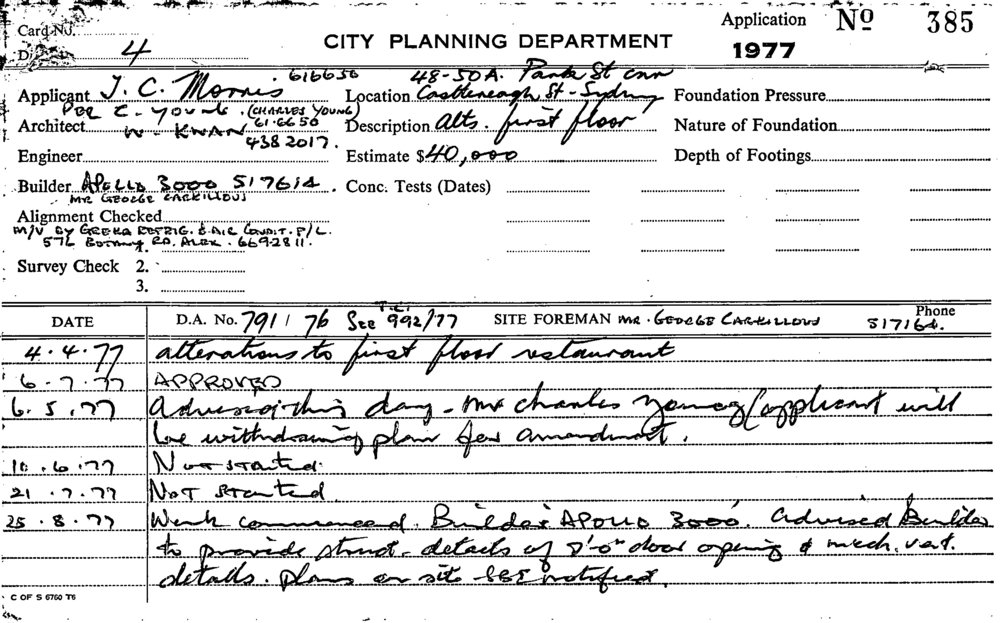 Card No.
Application No 385
D 4
CITY PLANNING DEPARTMENT
1977
616650
48-50A. Park St cnr
Applicant J. C. Morris Location Castlereagh St - Sydney Foundation Pressure
PER C. YOUNG. (CHARLES YOUNG)
Architect W. KWAN 61.6650 Description Alts. first floor Nature of Foundation
438 2017.
Engineer Estimate $40,000 Depth of Footings
Builder APOLLO 3000 517614. Conc. Tests (Dates)
MR GEORGE CARKILLOUS
Alignment Checked
M/V BY REFRIG. & AIR CONDIT. P/L.
576 BOTANY RD. ALEX. 669-2811.
1.
Survey Check 2.
3.
DATE D.A. No. 791 / 76 See 992/77 SITE FOREMAN MR. GEORGE CARKILLOUS Phone 517164.
4.4.77 alterations to first floor restaurant
6.7.77 APPROVED
6.5.77 Advised this day - Mr Charles Young (applicant will
be withdrawing plan for amendment.
10.6.77 Not started.
21.7.77 Not started.
25.8.77 Work commenced. Builder APOLLO 3000. Advised Builder
to provide struct. details of door opening & mech. vent.
details. plans on site notified.
C OF S 6760 T6